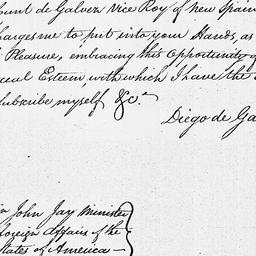 de Galvez Vice Roy of new Spain
me to put into your Hands, as
Pleasure, embracing this Opportunity of
Esteem with which I have the
Subscribe myself &c.a
Diego de Ga
John Jay Minister
foreign Affairs of the
States of America—